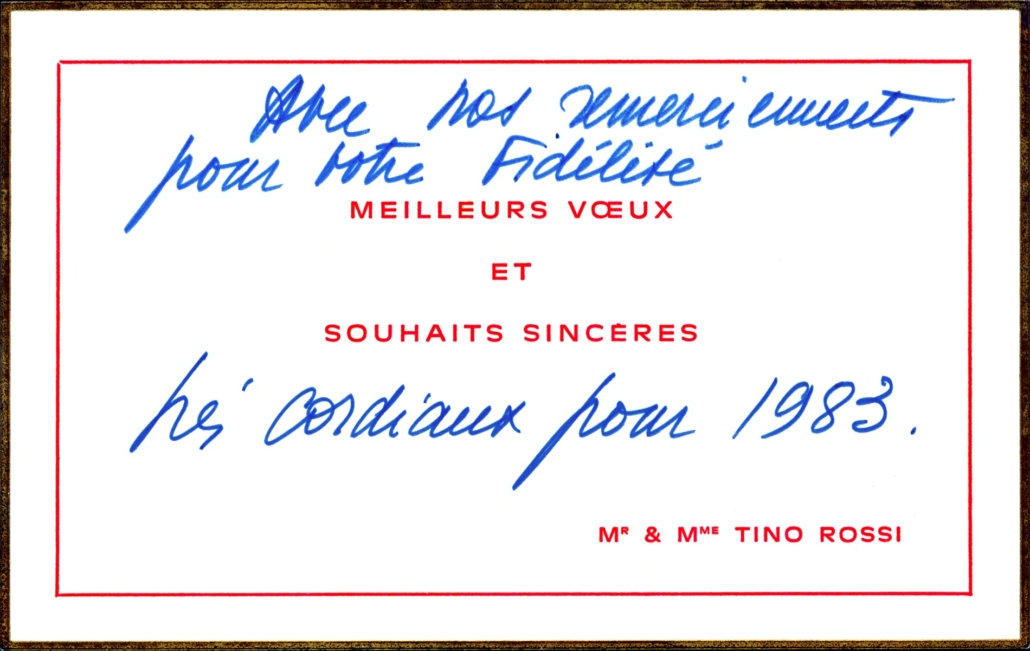 Avec nos remerciements
pour votre Fidélité
MEILLEURS VŒUX
ET
SOUHAITS SINCÈRES
très cordiaux pour 1983.
Mr & Mme TINO ROSSI